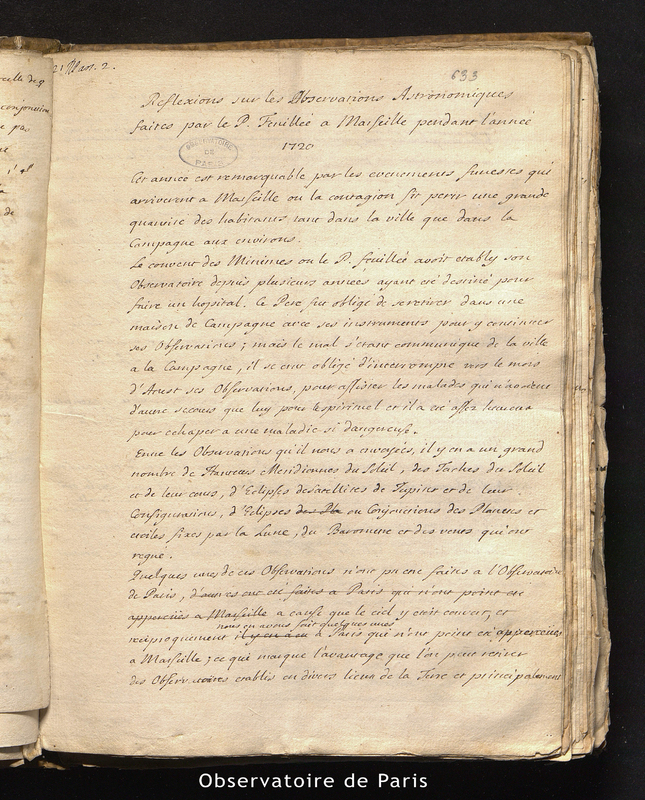 21 Mars. 2.
633
Reflexions sur les Observations Astronomiques
faites par le P. Feuillée a Marseille pendant l'année
1720
OBSERVATOIRE DE PARIS
Cet année est remarquable par les evenements funestes qui
arriverent a Marseille ou la contagion fit perir une grande
quantité des habitants tant dans la ville que dans la
Campagne aux environs.
Le couvent des Minimes ou le P. feuillée avoit etably son
Observatoire depuis plusieurs années ayant eté destiné pour
faire un hospital. Ce Pere fut obligé de se retirer dans une
maison de Campagne avec ses instruments pour y continuer
ses Observations ; mais le mal s'etant communiqué de la ville
a la Campagne, il se vit obligé d'interrompre vers le mois
d'Aoust ses Observations, pour assister les malades qui n'avoient
d'autre secours que luy pour le spirituel et il a eté assez heureux
pour echaper a une maladie si dangereuse.
Entre les Observations qu'il nous a envoyées, il y en a un grand
nombre de Hauteurs Meridiennes du Soleil, des Taches du Soleil
et de leur cours, d'Eclipses des satellites de Jupiter et de leur
Configurations, d'Eclipses des Pla ou Conjonctions des Planetes et
etoiles fixes par la Lune, du Barometre et des vents qui ont
regné.
Quelques unes de ces Observations n'ont pu etre faites a l'Observatoire
de Paris, d'autres ont eté faites a Paris qui n'ont point eté
apperceües a Marseille a cause que le ciel y etoit couvert, et
nous en avons fait quelques unes
reciproquement il y en a eu a Paris qui n'ont point eté apperceües
a Marseille ; ce qui marque l'avantage que l'on peut retirer
des Observatoires etablis en divers lieux de la Terre et principalement
Observatoire de Paris